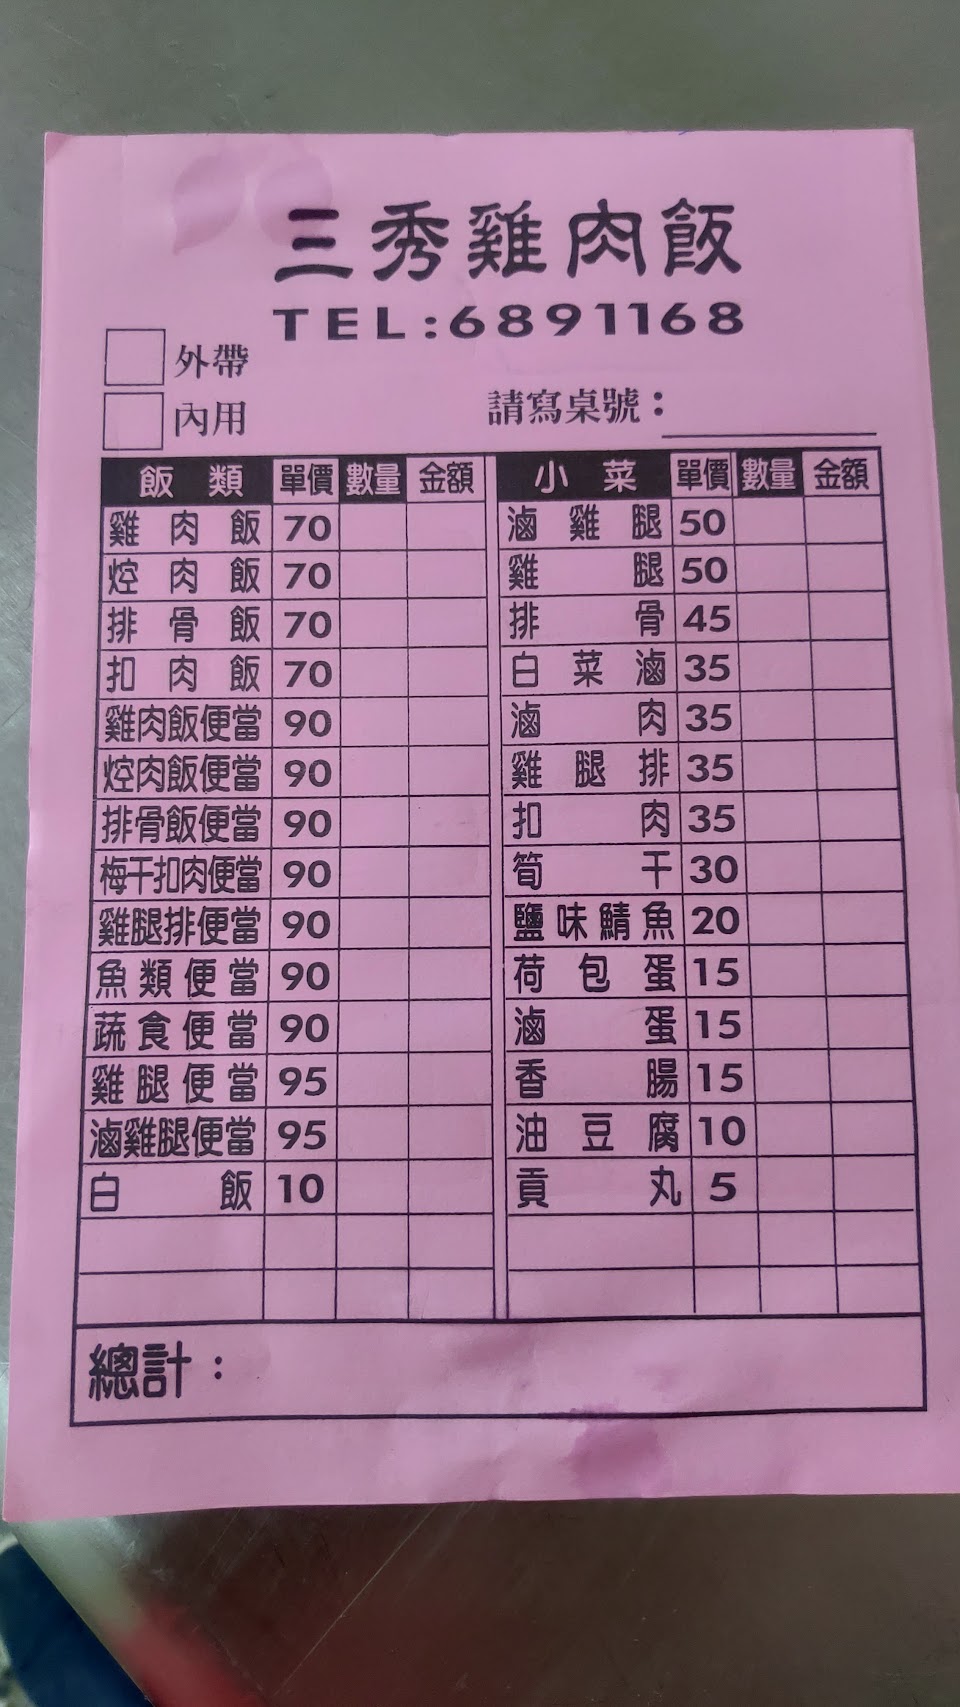 三秀雞肉飯
TEL:6891168
外帶
內用
請寫桌號：
飯類 單價 數量 金額 小菜 單價 數量 金額
雞肉飯 70 滷雞腿 50
焢肉飯 70 雞腿 50
排骨飯 70 排骨 45
扣肉飯 70 白菜滷 35
雞肉飯便當 90 滷肉 35
焢肉飯便當 90 雞腿排 35
排骨飯便當 90 扣肉 35
梅干扣肉便當 90 筍干 30
雞腿排便當 90 鹽味鯖魚 20
魚類便當 90 荷包蛋 15
蔬食便當 90 滷蛋 15
雞腿便當 95 香腸 15
滷雞腿便當 95 油豆腐 10
白飯 10 貢丸 5
總計：